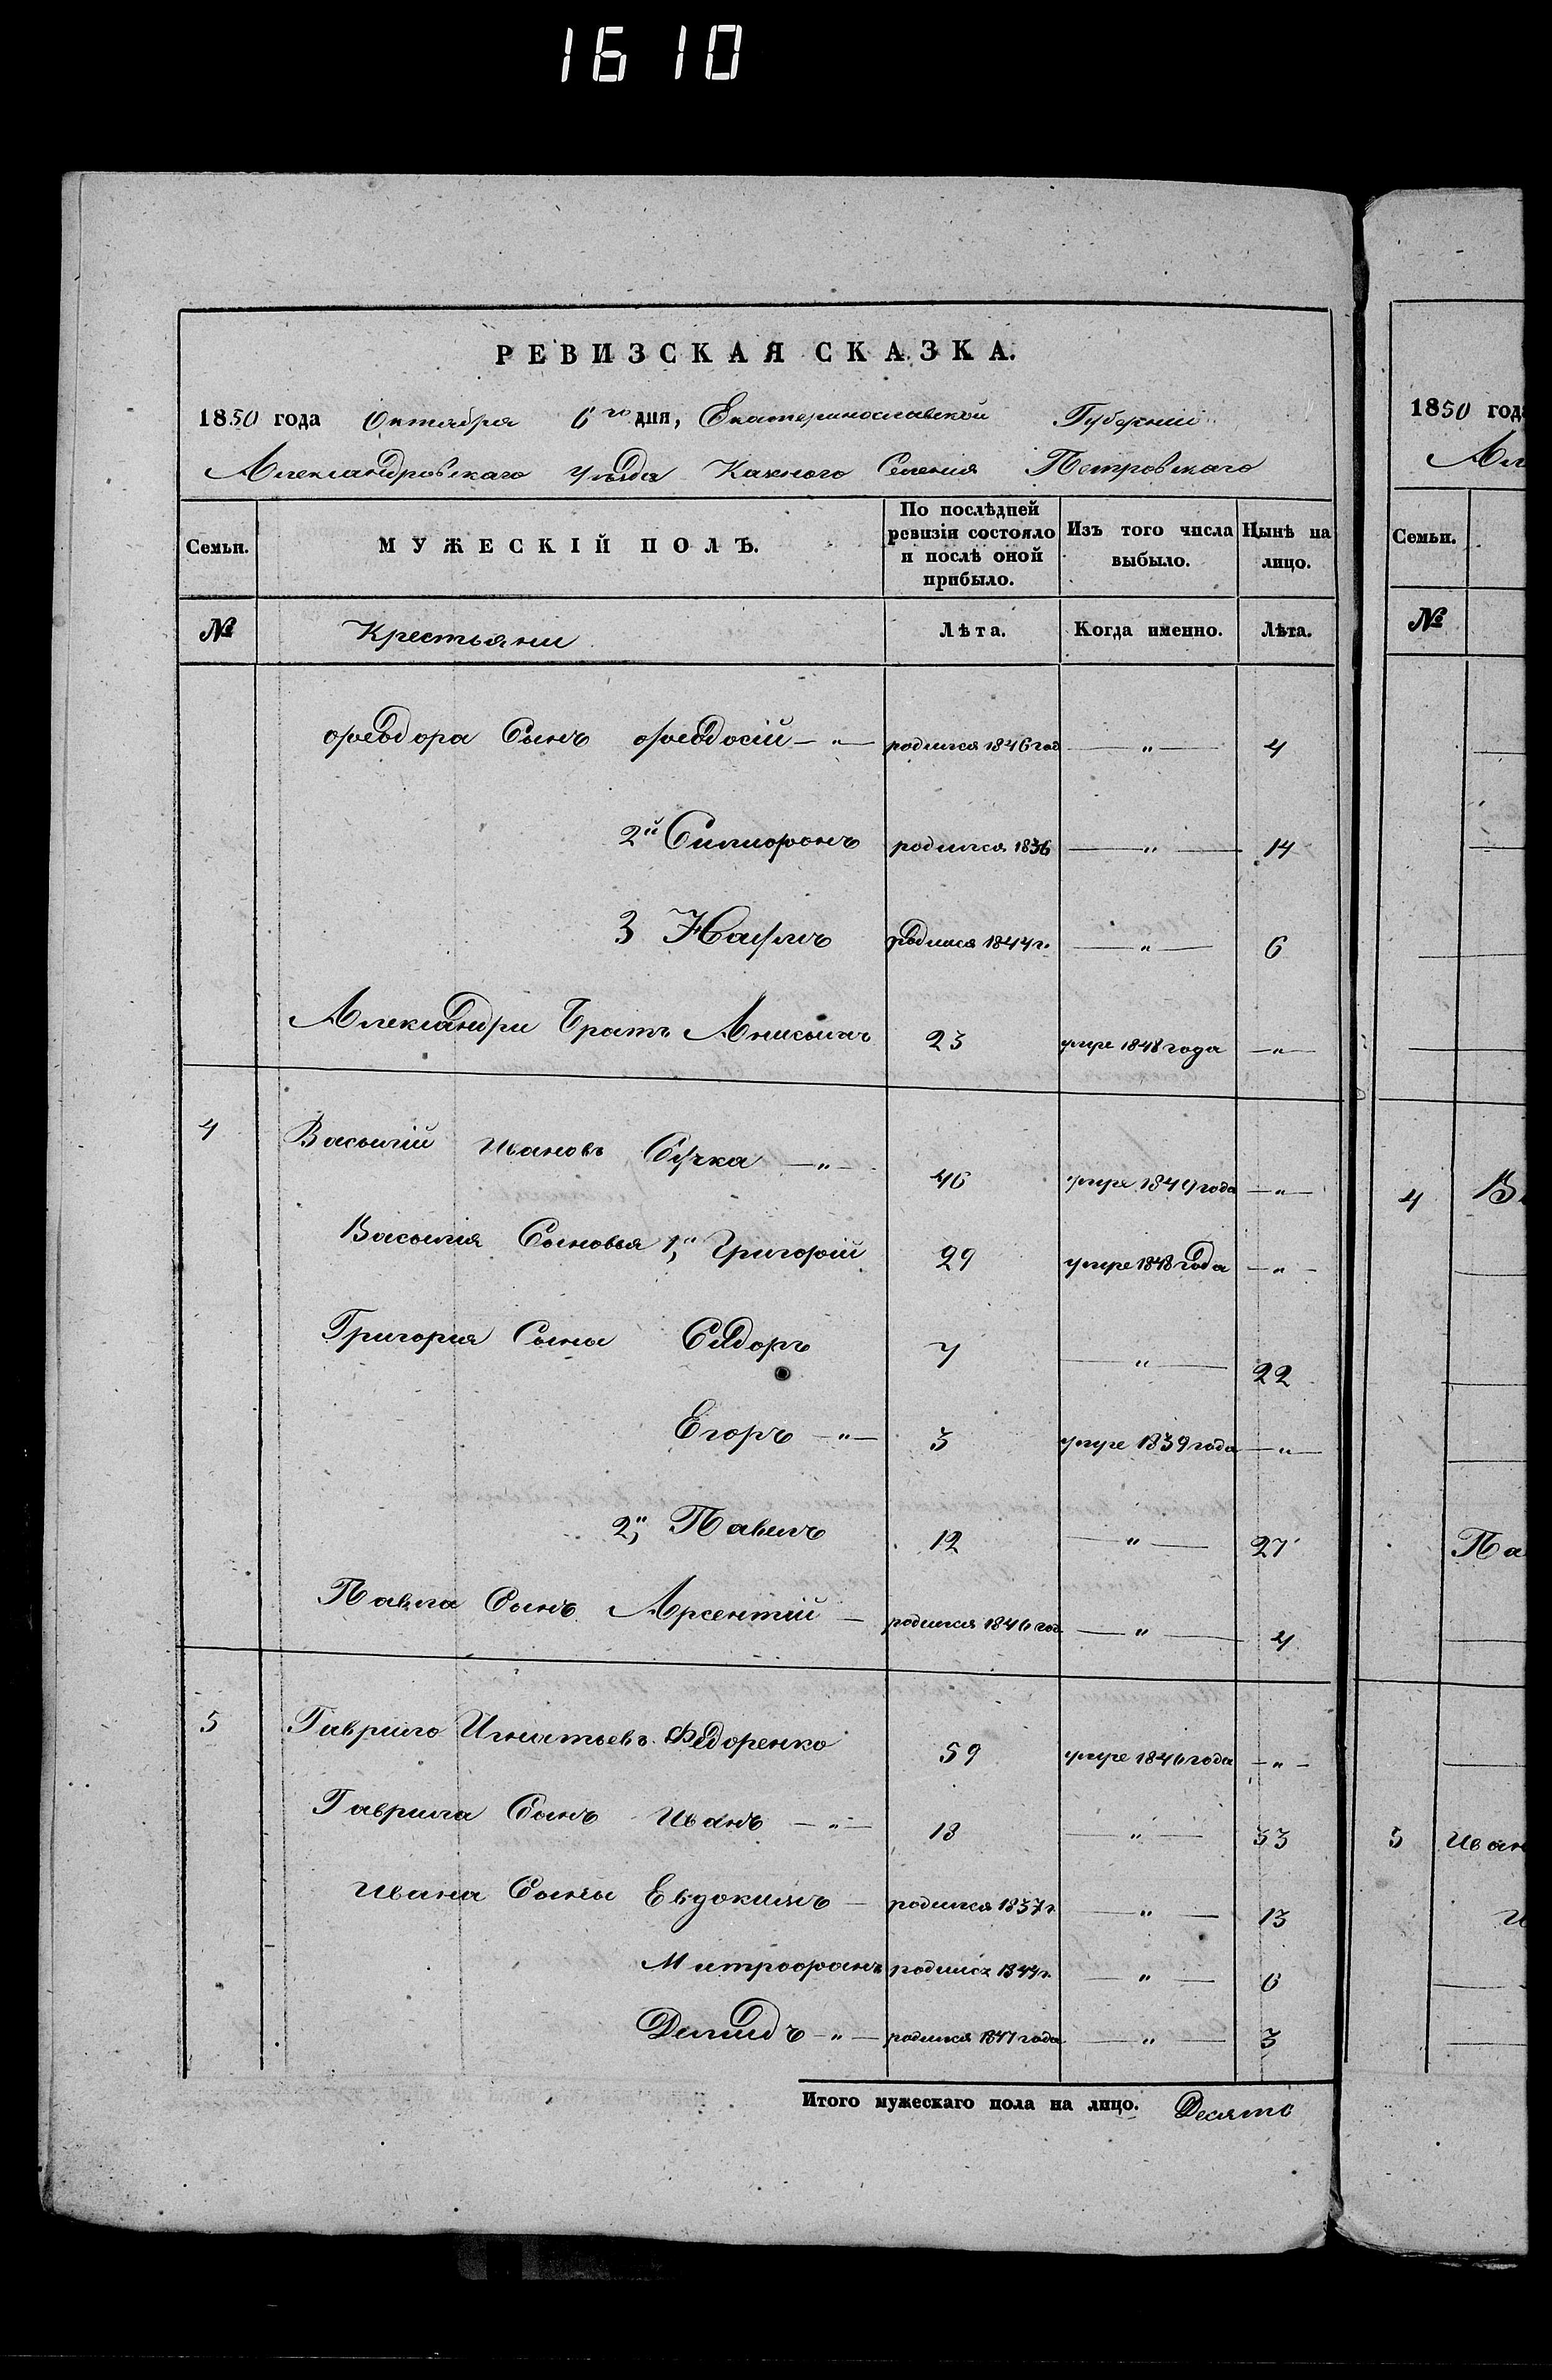 1610
РЕВИЗСКАЯ СКАЗКА.
1850 года Октября 6го дня, Екатеринославской Губерніи
Александровскаго Уезда Казеного Селенія Петровскаго
Семьи. МУЖЕСКІЙ ПОЛЪ. По послѣдней ревизіи состояло и послѣ оной прибыло. Изъ того числа выбыло. Нынѣ на лицо.
№ Крестьяни Лѣта. Когда именно. Лѣта.
Феодора Сынъ Феодосій —"— родился 1846 год —"— 4
2й Силифонъ родился 1836 —"— 14
3 родился 1844 г. —"— 6
Александри Братъ 23 умре 1848 года —"—
4 Васылій Ивановъ Сучка —"— 46 умре 1849 года —"—
Васылія Сыновья 1й Григорій 29 умре 1848 года —"—
Григория Сыны Сидоръ 7 —"— 22
Егоръ —"— 3 умре 1839 года —"—
2й Павелъ 12 —"— 27
Павла Сынъ Арсентій — родился 1846 год —"— 4
5 Гаврило Игнатьевъ Федоренко 59 умре 1846 года —"—
Гаврила Сынъ Иванъ —"— 18 —"— 33
Ивана Сыны Евдокимъ — родился 1837 г. —"— 13
Митрофанъ родился 1844 г. —"— 6
Демидъ —"— родился 1847 года —"— 3
Итого мужескаго пола на лицо. Десять
1850 года
Ал
Семьи.
№
4 В
Па
5 Иван
И